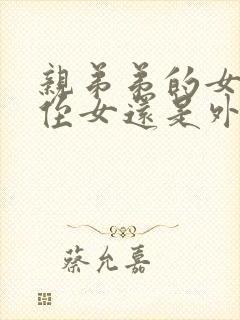 親弟弟的女
侄女還是外
蔡允嘉